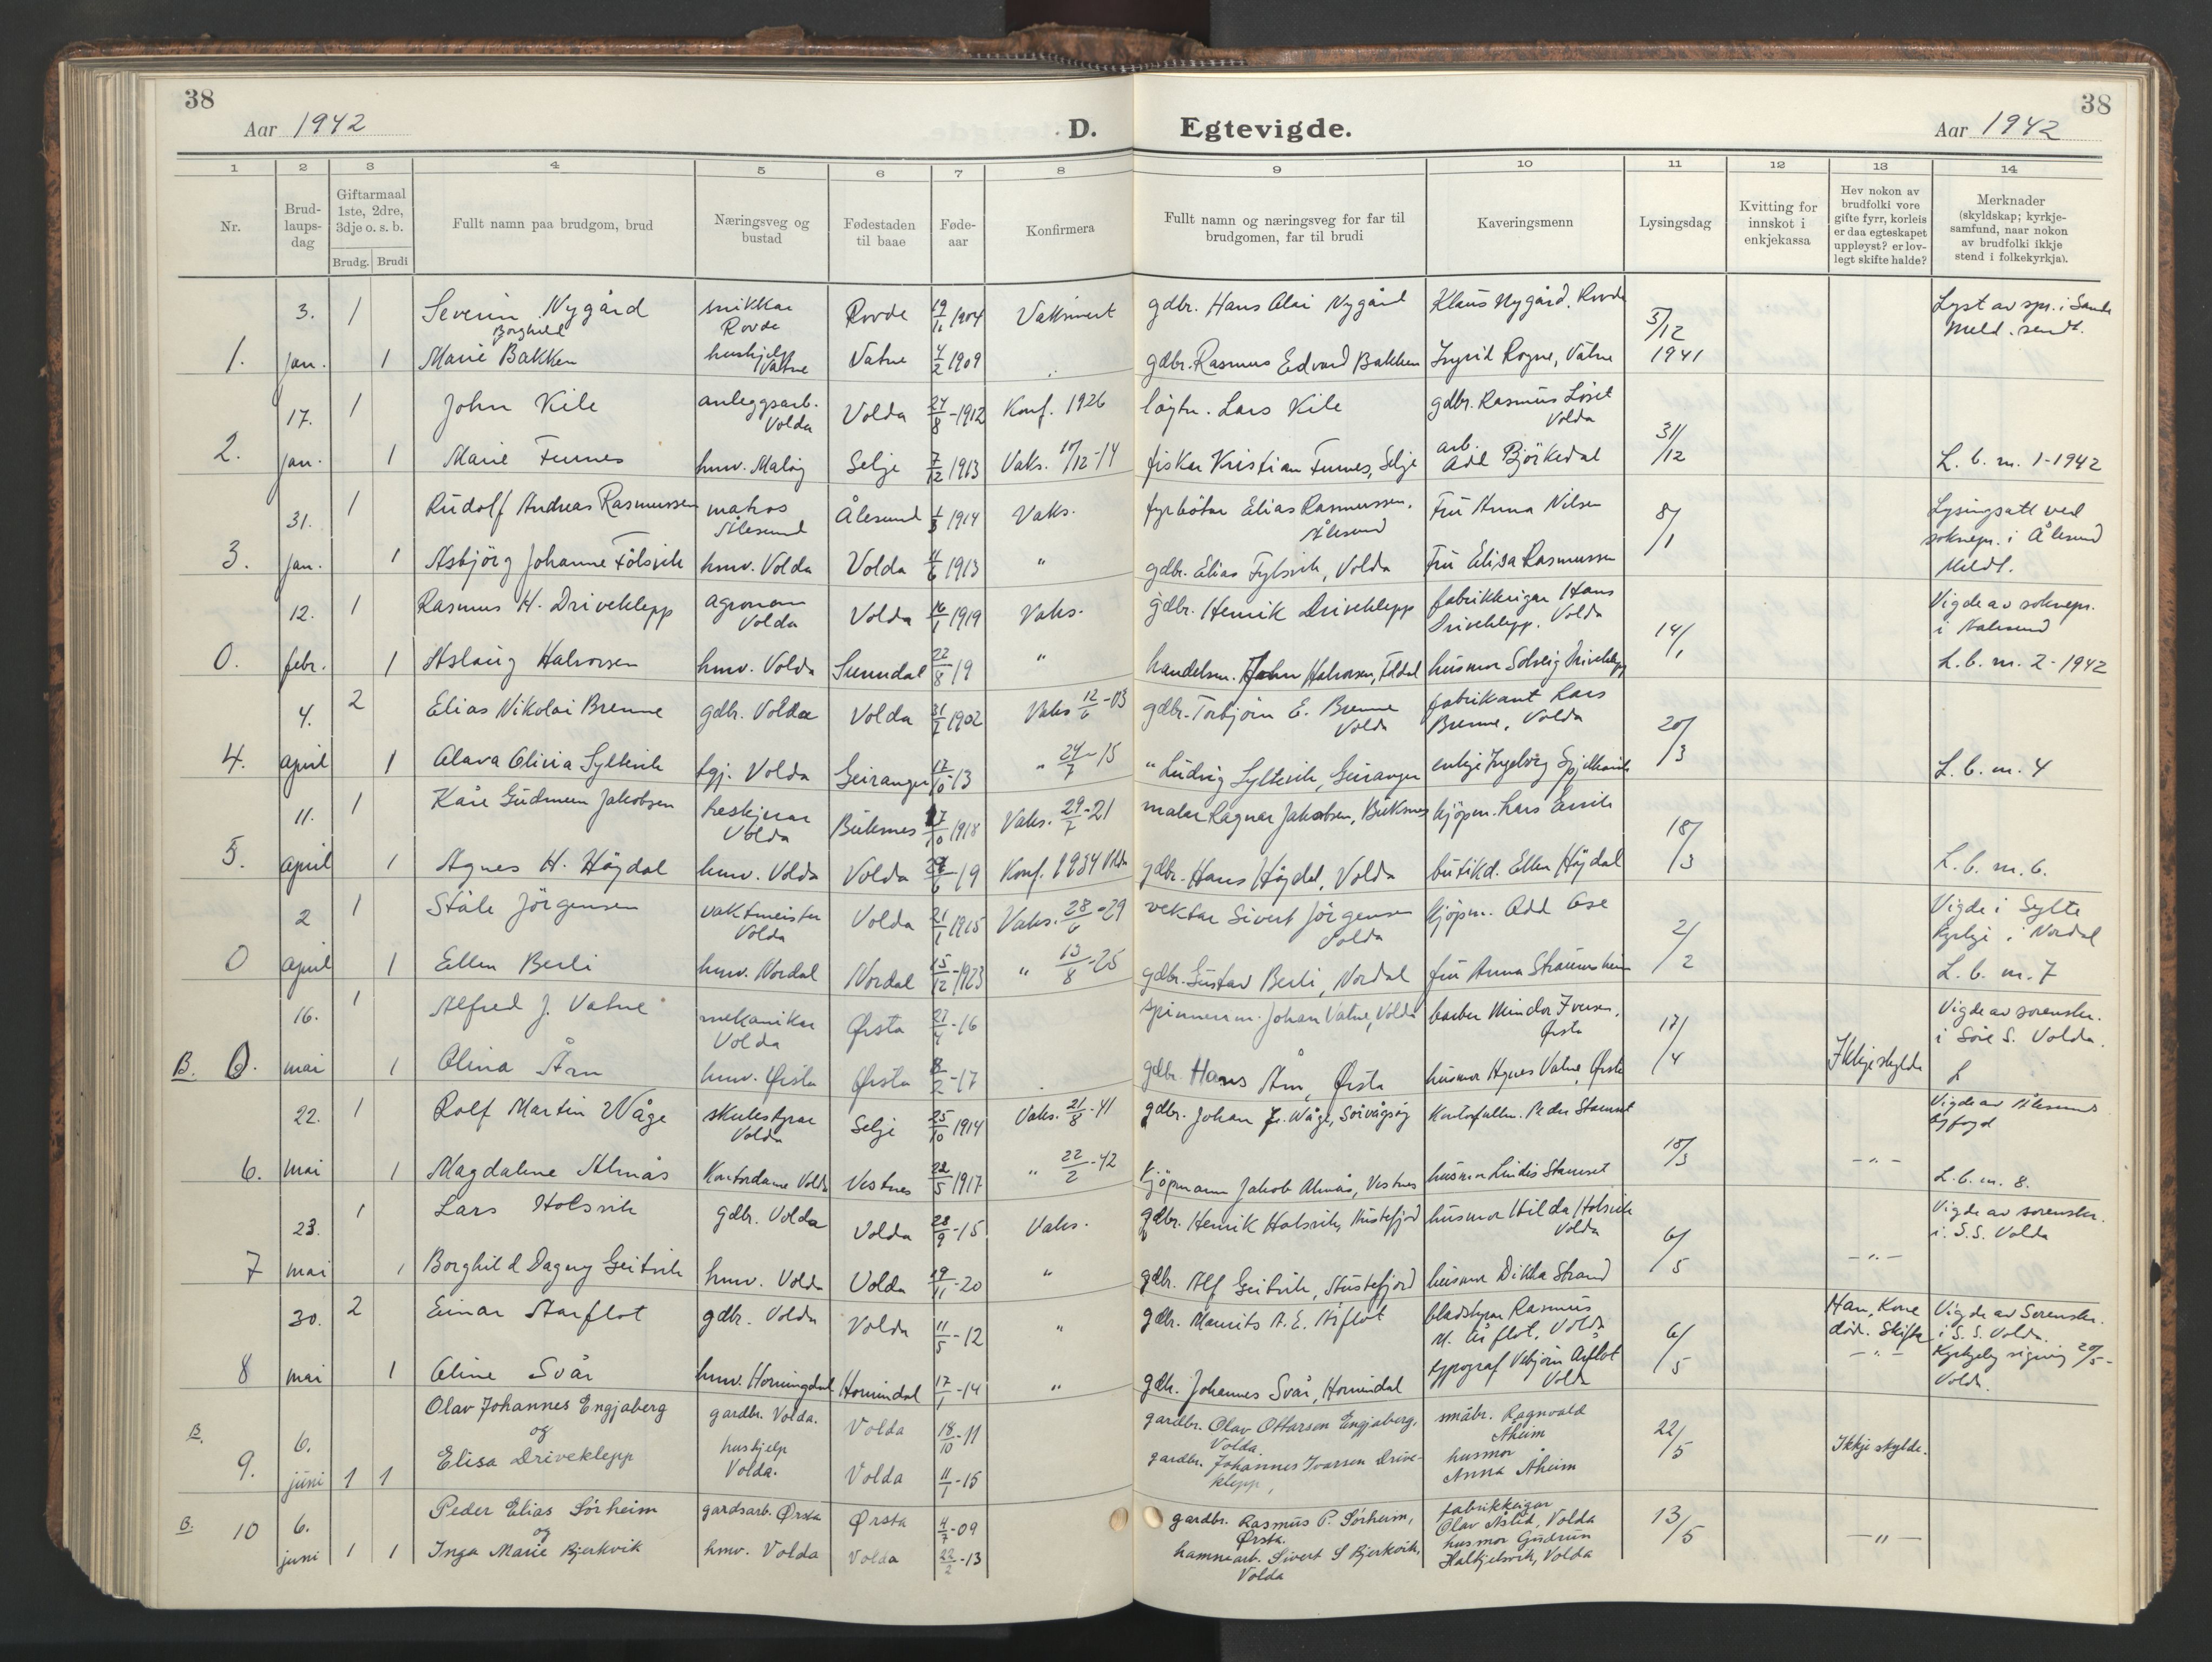 38
38
Aar 1942
D. Egtevigde.
Aar 1942
1 2 3 4 5 6 7 8 9 10 11 12 13 14
Nr.
Brud-
laups-
dag
Giftarmaal
1ste, 2dre,
3dje o. s. b.
Brudg. Brudi
Fullt namn paa brudgom, brud
Næringsveg og
bustad
Fødestaden
til baae
Føde-
aar
Konfirmera
Fullt namn og næringsveg for far til
brudgomen, far til brudi
Kaveringsmenn
Lysingsdag
Kvitting for
innskot i
enkjekassa
Hev nokon av
brudfolki vore
gifte fyrr, korleis
er daa egteskapet
uppløyst? er lov-
legt skifte halde?
Merknader
(skyldskap; kyrkje-
samfund, naar nokon
av brudfolki ikkje
stend i folkekyrkja).
3. 1 Severin Nygård snikkar Rovde Rovde 19/11 1904 Vaksinert gdbr. Hans Nygård Klaus Nygård. Rovde 5/12 Lyst av spr. i Sande Meld. sendt.
1. jan. 1 Marie Borghild Bakken hushjelp Vatne Vatne 4/2 1909 gdbr. Rasmus Edvard Bakken Ingrid Rogne, Vatne 1941
17. 1 John Kile anleggsarb. Volda Volda 24/8-1912 Konf. 1926 Lars Kile gdbr. Rasmus Løset Volda
2. jan. 1 Marie Furnes hmv. Måløy Selje 7/12 1913 Vaks. 10/12-14 fisker Kristian Furnes, Selje arb. Björkedal 31/12 L. b. m. 1-1942
31. 1 Rudolf Andreas Rasmussen matros Ålesund Ålesund 1/3 1914 Vaks. fyrbötar Elias Rasmussen, Ålesund Fru Anna Nilsen 8/1 Lysingsatt ved soknepr. i Ålesund Meldt.
3. jan. 1 Asbjörg Johanne Fölsvik hmv. Volda Volda 4/6 1913 " gdbr. Elias Fylsvik, Volda Fru Elisa Rasmussen
12. 1 Rasmus H. Driveklepp agronom Volda Volda 16/1 1919 Vaks. gdbr. Henrik Driveklepp fabrikkeigar Hans Driveklepp. Volda 14/1 Vigde av soknepr. i Aalesund
0. febr. 1 Aslaug Halvorsen hmv. Volda Sunndal 22/8 19 " handelsm. John Halvorsen, husmor Solveig Driveklepp L. b. m. 2-1942
4. 2 Elias Nikolai Brenne gdbr. Volda Volda 31/7 1902 Vaks 12/6-03 gdbr. Torbjörn E. Brenne Volda fabrikant Lars Brenne, Volda 20/3
4. april 1 Olivia Syltevik tgj. Volda Geiranger 17/10-13 " 24/7-15 " Ludvig Syltevik, Geiranger enkje Ingeborg L. b. m. 4
11. 1 Kåre Gudmun Jakobsen Volda Buksnes 27/10 1918 Vaks. 29/7-21 malar Ragnar Jakobsen, Buksnes kjöpm. Lars 18/3
5. april 1 Agnes H. Högdal hmv. Volda Volda 29/6-19 Konf. 1934 Volda gdbr. Hans Högdal, Volda butikd. Ellen Högdal L. b. m. 6.
2 1 Ståle Jörgensen vaktmeister Volda Volda 21/1 1915 Vaks. 28/6-29 vektar Sivert Jörgensen Volda kjöpm. Odd Ose 2/2 Vigde i Sylte kyrkje i Nordal
0 april 1 Ellen Berli hmv. Nordal Nordal 15/12-1923 " 13/8-25 gdbr. Gustav Berli, Nordal fru Anna Straumsheim L. b. m. 7
16. 1 Alfred J. Vatne mekanikar Volda Ørsta 27/4-16 spinnerim. Johan Vatne, Volda barber Mindor Iversen, Ørsta 17/4 Vigde av sorenskr. i Söre S. Volda.
B. 0. mai 1 Olina Åm hmv. Ørsta Ørsta 8/2-17 gdbr. Hans Åm, Ørsta husmor Agnes Vatne, Ørsta Ikkje skylde L
22. 1 Rolf Martin Wåge skulestyrar Volda Selje 25/10 1914 Vaks. 21/8-41 gdbr. Johan Fr. Wåge, Sörvågsöy Kontorfullm. Peder Stamset 18/3 Vigde av Ålesund byfogd
6. mai 1 Magdalene Almås Kontordame Volda Vestnes 22/5 1917 " 22/2-42 Kjöpmann Jakob Almås, Vestnes husmor Lindis Stamset -"- L. b. m. 8.
23. 1 Lars Holsvik gdbr. Volda Volda 28/9-15 Vaks. gdbr. Henrik Holsvik, Austefjord husmor Hilda Holsvik Volda 6/5 Vigde av sorenskr. i S.S. Volda
7 mai 1 Borghild Dagny Geitvik hmv. Volda Volda 19/11-20 " gdbr. Alf Geitvik, Austefjord husmor Dikka Strand -"-
30. 2 Einar Aarflot gdbr. Volda Volda 11/5-12 " gdbr. Maurits A. E. Aarflot bladstyrar Rasmus M. Årflot, Volda 6/5 Han, Kone död. Skifte Vigde av Sorenskr. i S. S. Volda.
8 mai 1 Oline Svår hmv. Horningdal Hornindal 17/1-14 " gdbr. Johannes Svår, Hornindal typograf Vebjörn Årflot Volda -"- Kyrkjeleg signing 20/5- Volda.
B. 9. 6. juni 1 1 Olav Johannes Engjaberg gardbr. Volda. Volda 18/10-11 gardbr. Olav Ottarson Engjaberg, Volda. småbr. Ragnvald Åheim 22/5 Ikkje skylde.
og
Elisa Driveklepp hushjelp Volda. Volda 11/1-15 gardbr. Johannes Ivarsen Drive-klepp, husmor Anna Åheim
B. 10 6. juni 1 1 Peder Elias Sörheim gardsarb. Ørsta Ørsta 4/7-09 gardbr. Rasmus P. Sörheim, Ørsta. fabrikkeigar Olav Aslid, Volda 13/5 -"-
og
Inga Marie Bjerkvik hmv. Volda Volda 22/2-13 hamnearb. Sivert S Bjerkvik, Volda husmor Gudrun Halkjelsvik, Volda